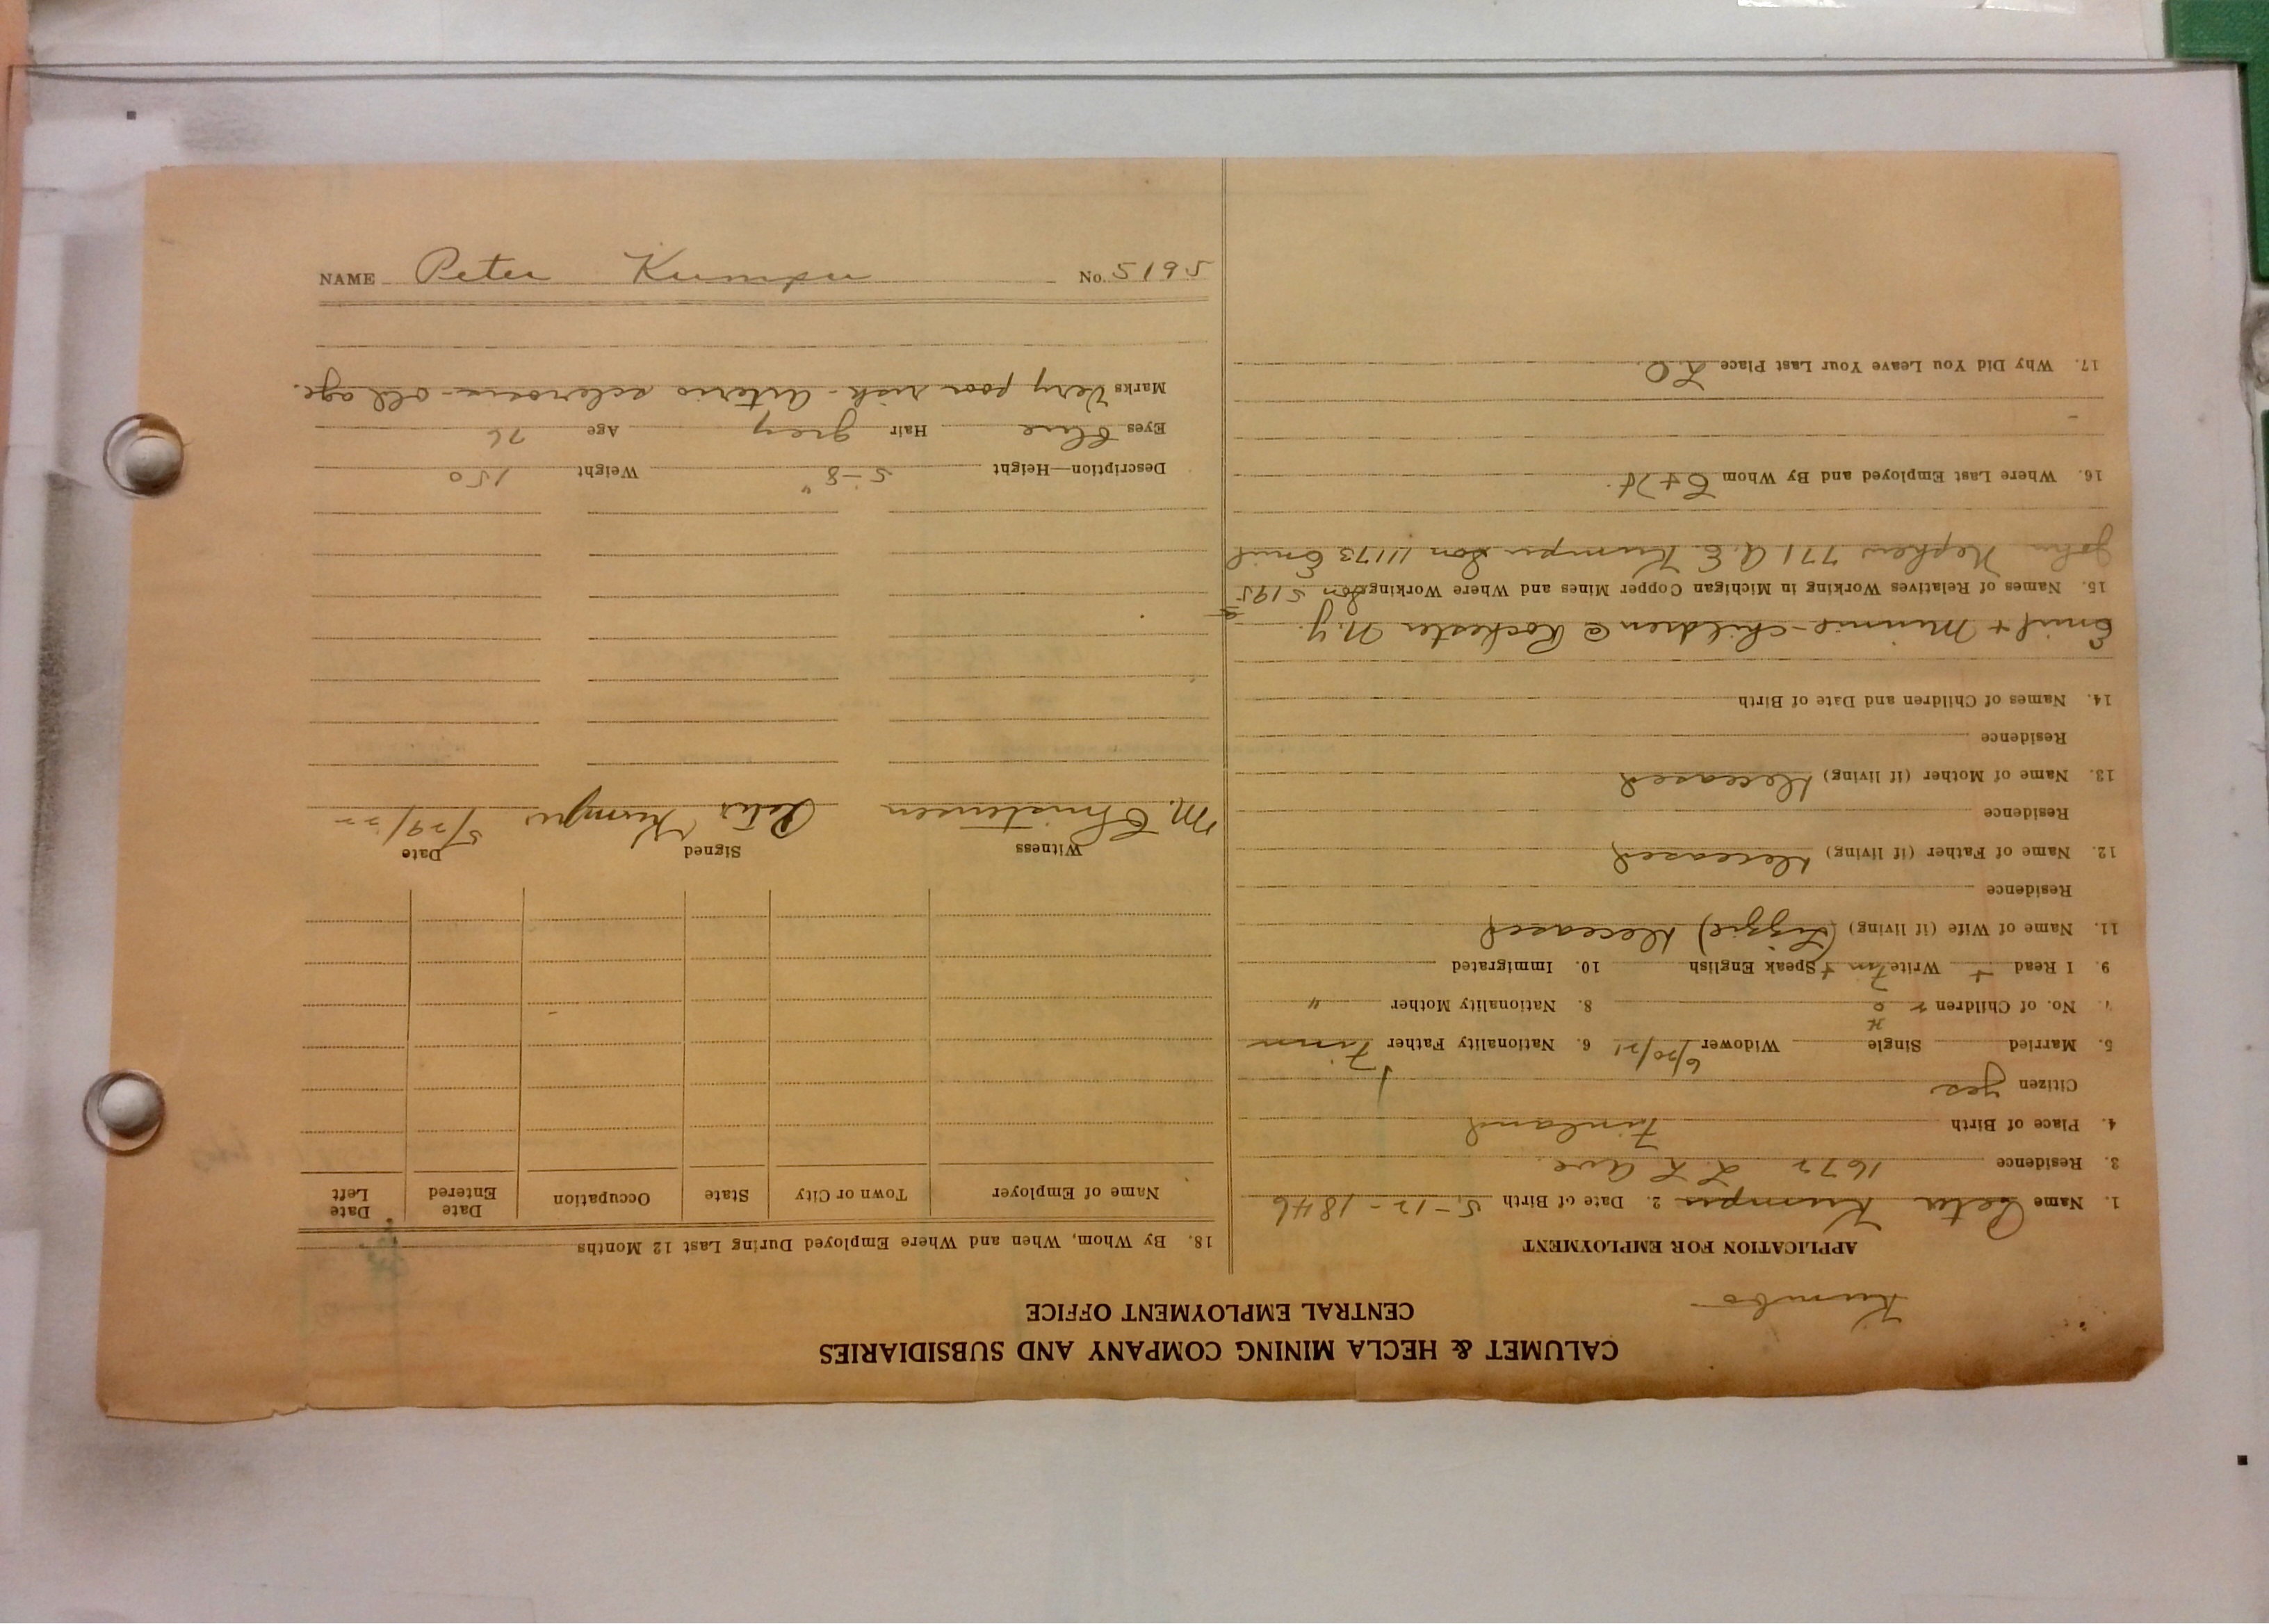 CALUMET & HECLA MINING COMPANY AND SUBSIDIARIES
CENTRAL EMPLOYMENT OFFICE
Kumbo
APPLICATION FOR EMPLOYMENT
1. Name Peter Kumpu 2. Date of Birth 5-12-1846
3. Residence 1672 L L Ave.
4. Place of Birth Finland
Citizen yes
5. Married Single Widower 6/20/21 6. Nationality Father Finn
7. No. of Children 2 0 8. Nationality Mother "
9. I Read + Write Finn + Speak English 10. Immigrated
11. Name of Wife (if living) (Lizzie) Deceased
Residence
12. Name of Father (if living) Deceased
Residence
13. Name of Mother (if living) Deceased
Residence
14. Names of Children and Date of Birth
Emil + Minnie - children @ Rochester N.Y.
15. Names of Relatives Working in Michigan Copper Mines and Where Working Son 5195
John Nephew 771 A.E. Kumpu Son 11173 Emil
16. Where Last Employed and By Whom C + H.
17. Why Did You Leave Your Last Place L.O.
18. By Whom, When and Where Employed During Last 12 Months
Name of Employer Town or City State Occupation Date Entered Date Left
Witness Signed Date
M. Christensen Peter Kumpu 5/29/22
Description—Height 5-8" Weight 150
Eyes Blue Hair grey Age 76
Marks Very poor risk - Arterio sclerosis - old age.
NAME Peter Kumpu No. 5195